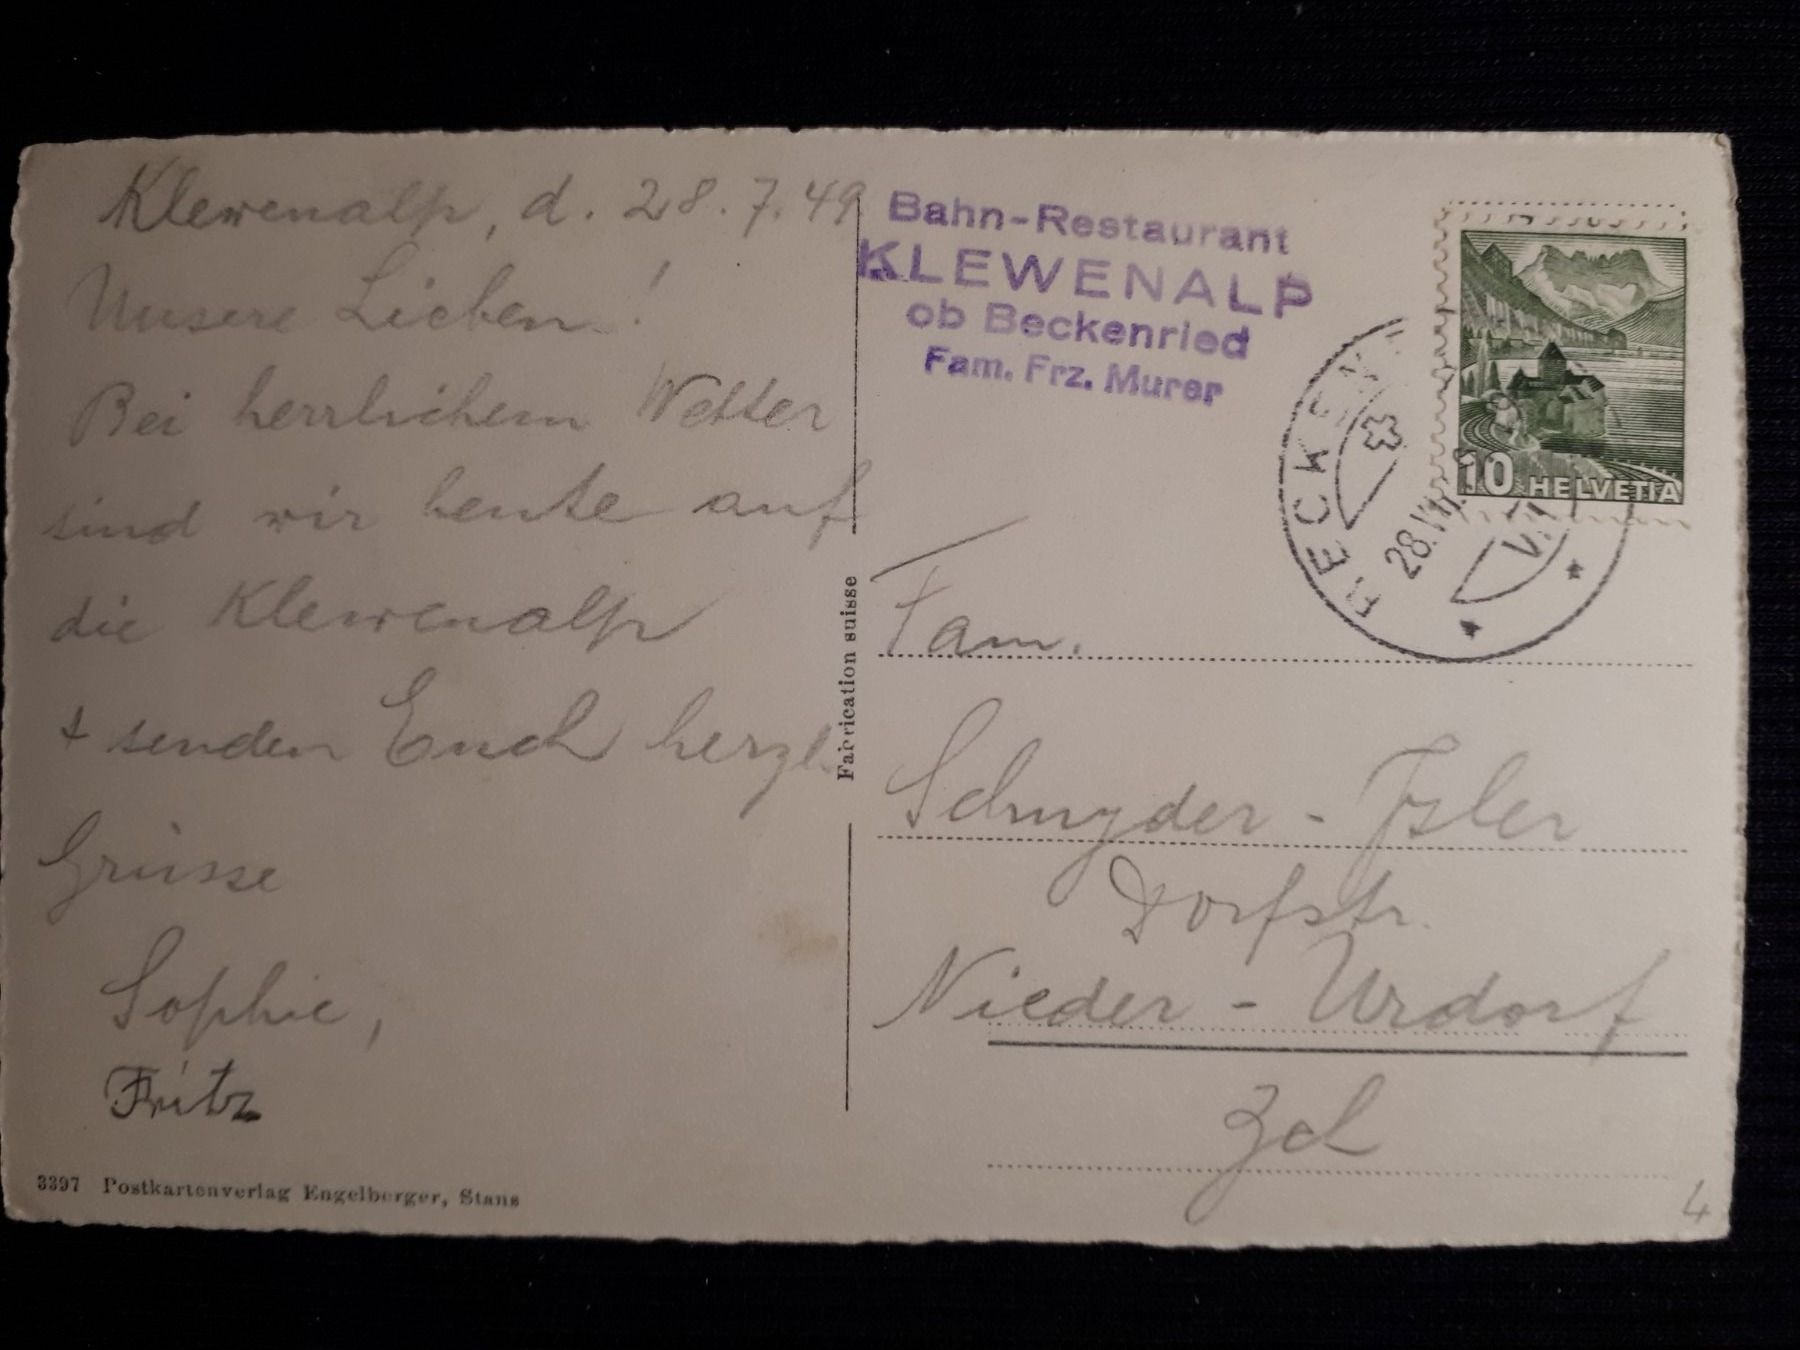 Klewenalp, d. 28.7.49
Unsere Lieben!
Bei herrlichem Wetter
sind wir heute auf
die Klewenalp
+ senden Euch herzl.
Grüsse
Sophie,
Fritz
3397 Postkartenverlag Engelberger, Stans
Fabrication suisse
Bahn-Restaurant
KLEWENALP
ob Beckenried
Fam. Frz. Murer
10 HELVETIA
BECKENR
28.VII
Fam.
Schnyder - Isler
Dorfstr.
Nieder - Urdorf
Zch
4